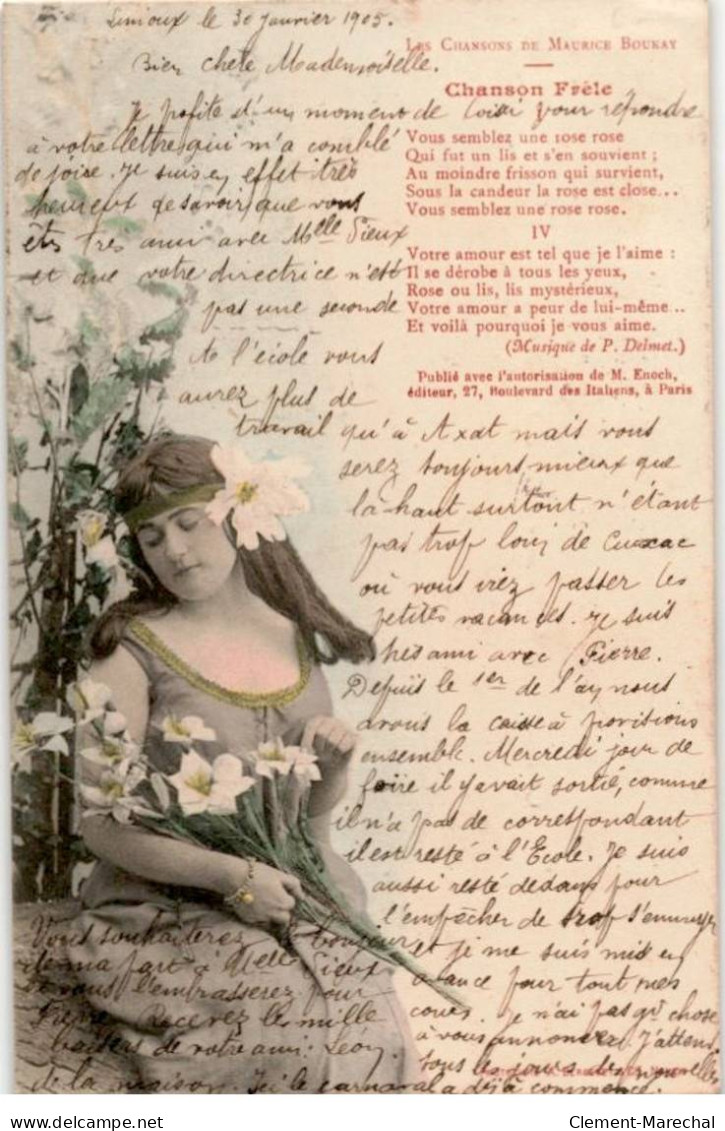 Limoux le 30 janvier 1905.
Bien chère Mademoiselle.
Je profite d'un moment de loisir pour répondre
à votre lettre qui m'a comblé
de joie. Je suis en effet très
heureux de savoir que vous
êts très ami avec Melle Sieux
et que votre directrice n'est
pas une seconde
A l'école vous
aurez plus de
travail qu'à Axat mais vous
serez toujours mieux que
là-haut surtout n'étant
pas trop loin de Cuxac
où vous irez passer les
petites vacances. Je suis
très ami avec Pierre.
Depuis le 1er de l'an nous
avons la caisse à provisions
ensemble. Mercredi jour de
foire il y avait sortie, comme
il n'a pas de correspondant
il est resté à l'Ecole. Je suis
aussi resté dedans pour
l'empêcher de trop s'ennuyer
et je me suis mis en
avance pour tout mes
cours. Je n'ai pas gd chose
à vous annoncer. J'attens
tous les jours des nouvelles
de la maison. Ici le carnaval a déjà commencé.
Vous souhaiterez le bonjour
de ma part à Melle Sieux
et vous l'embrasserez pour
Pierre. Recevez les mille
baisers de votre ami: Léon
LES CHANSONS DE MAURICE BOUKAY
Chanson Frêle
Vous semblez une rose rose
Qui fut un lis et s'en souvient ;
Au moindre frisson qui survient,
Sous la candeur la rose est close...
Vous semblez une rose rose.
IV
Votre amour est tel que je l'aime :
Il se dérobe à tous les yeux,
Rose ou lis, lis mystérieux,
Votre amour a peur de lui-même...
Et voilà pourquoi je vous aime.
(Musique de P. Delmet.)
Publié avec l'autorisation de M. Enoch,
éditeur, 27, Boulevard des Italiens, à Paris
Clement-Marechal